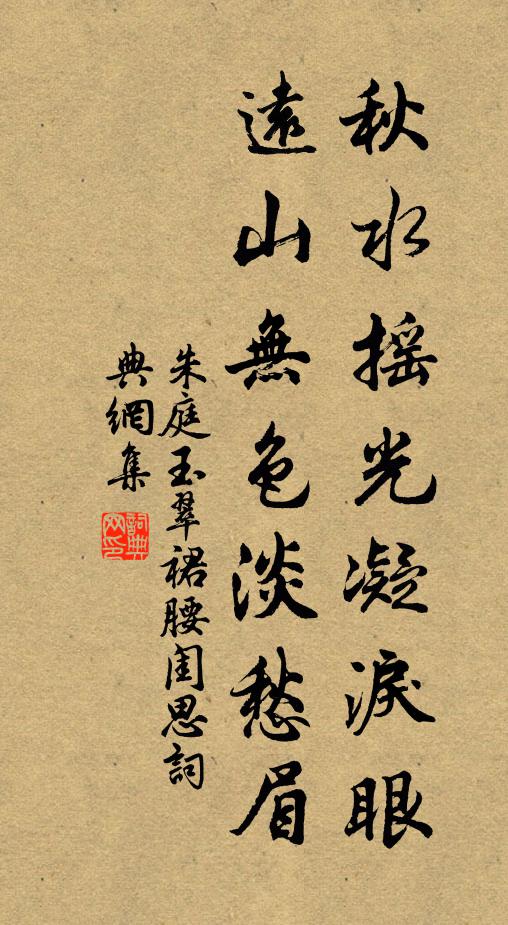 秋水摇光凝淚眼
遠山無色淡愁眉
朱庭玉翠裙腰閨思詞
典網集
詞典
网印